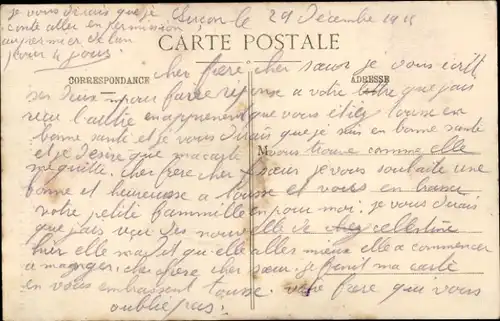 je vous dirais que je
conte aller en permission
au premier de lan
pour 4 jours
Luçon le 29 Décembre 19
CARTE POSTALE
CORRESPONDANCE
ADRESSE
cher frère cher sœur je vous écrit
ses deux mots pour faire réponse a votre lettre que jais
reçu l'autre en apprenent que vous étiez tousse en
bonne santé et je vous dirais que je suis en bonne santé
et je désire que ma carte
M vous trouve comme elle
me quitte. cher frère cher sœur je vous souhaite une
bonne et heureusse a tousse et vous en
notre petite fammille en pour moi. je vous dirais
que jais reçu des nouvelle de chez cellestine
hier elle ma dit qui elle alles mieux elle a commencer
a manger. cher frère cher sœur. je finit ma carte
en vous embrassent tousse. votre frère que vous
oublie pas.